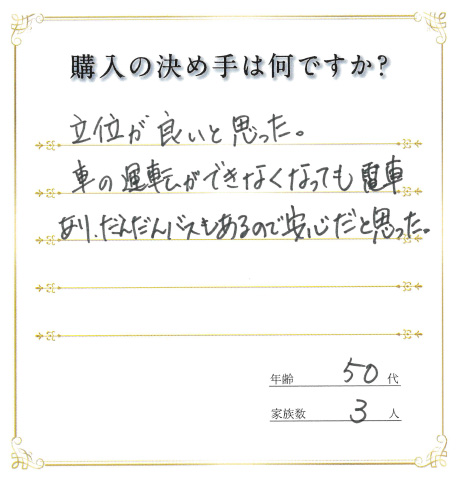 購入の決め手は何ですか?
立位が良いと思った。
車の運転ができなくなっても電車
あり、だんだんバスもあるので安心だと思った。
年齢 50 代
家族数 3 人